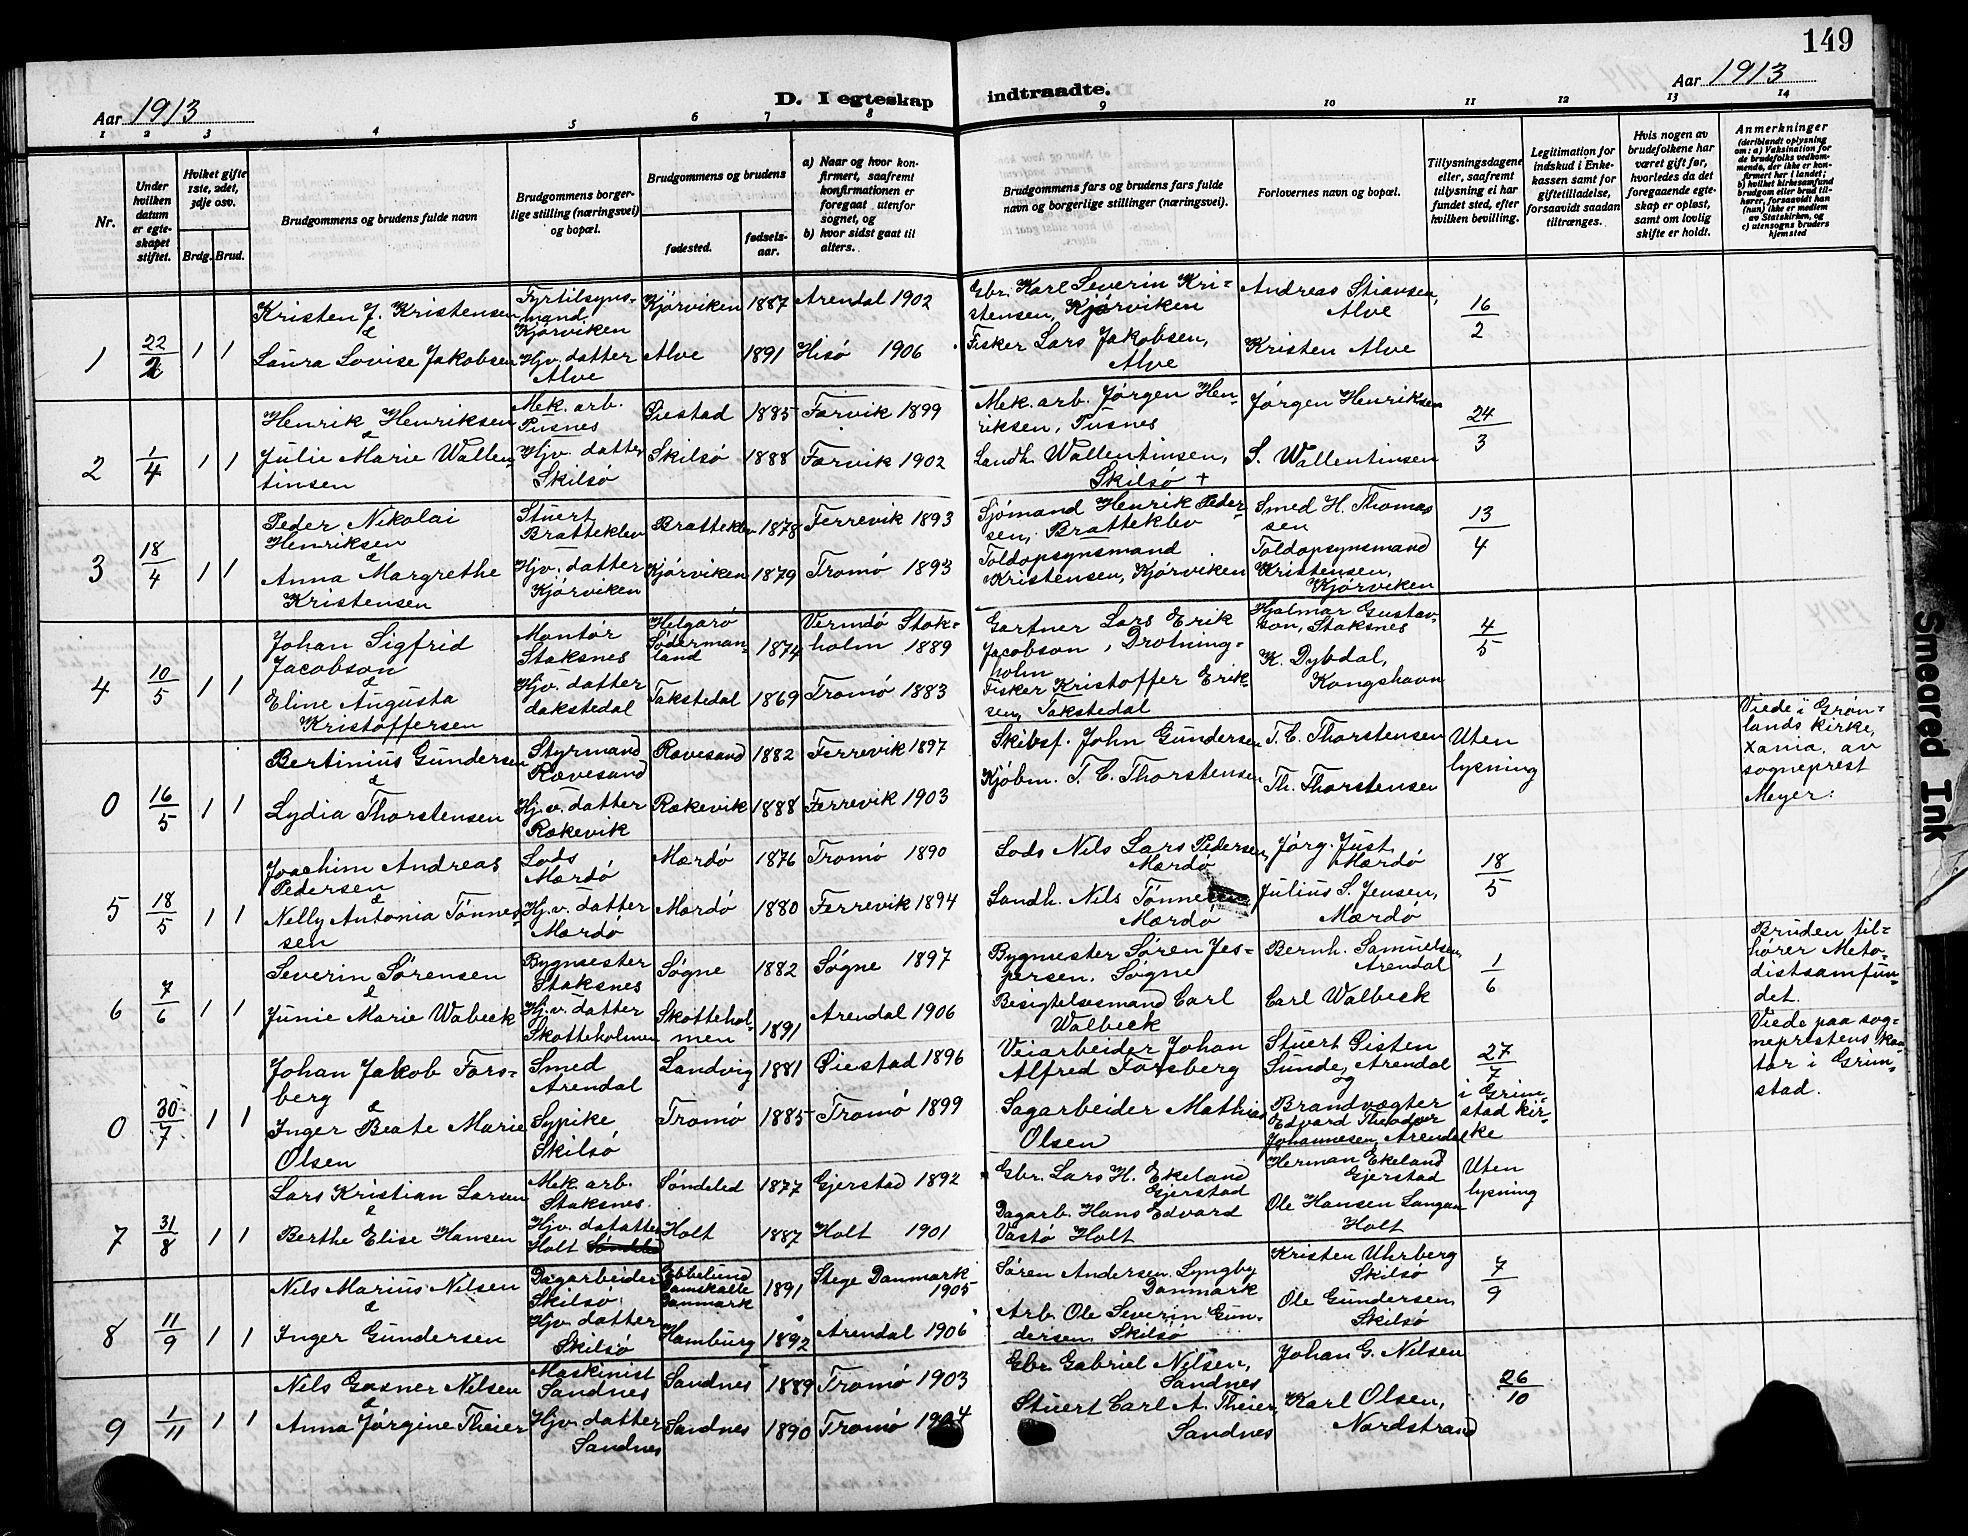 149
Aar 1913
D. I egteskap indtraadte.
Aar 1913
1 2 3 4 5 6 7 8 9 10 11 12 13 14
Nr.
Under hvilken datum er egteskapet stiftet.
Hvilket gifte 1ste, 2det, 3dje osv.
Brdg. Brud.
Brudgommens og brudens fulde navn
Brudgommens borgerlige stilling (næringsvei) og bopæl.
Brudgommens og brudens
fødested.
fødselsaar.
a) Naar og hvor konfirmert, saafremt konfirmationen er foregaaet utenfor sognet, og
b) hvor sidst gaat til alters.
Brudgommens fars og brudens fars fulde navn og borgerlige stillinger (næringsvei).
Forlovernes navn og bopæl.
Tillysningsdagene eller, saafremt tillysning ei har fundet sted, efter hvilken bevilling.
Legitimation for indskud i Enkekassen samt for giftetilladelse, forsaavidt saadan tiltrænges.
Hvis nogen av brudefolkene har været gift før, hvorledes da det foregaaende egteskap er opløst, samt om lovlig skifte er holdt.
Anmerkninger
(deriblandt oplysning om: a) Vaksination for de brudefolks vedkommende, der ikke er konfirmert her i landet; b) hvilket kirkesamfund brudgom eller brud tilhører, forsaavidt han (hun) ikke er medlem av Statskirken, og c) utensogns bruders hjemsted
1 22/2 1 1
Kristen J. Kristensen
&
Laura Lovise Jakobsen
Fyrtilsynsmand. Kjørviken
Hjv. datter Alve
Kjørviken 1887 Arendal 1902
Alve 1891 Hisø 1906
Gbr. Karl Severin Kristensen, Kjørviken
Fisker Lars Jakobsen, Alve
Andreas Stiansen, Alve
Kristen Alve
16/2
2 1/4 1 1
Henrik Henriksen
&
Julie Marie Wallentinsen
Mek. arb. Pusnes
Hjv. datter Skilsø
Øiestad 1885 Færvik 1899
Skilsø 1888 Færvik 1902
Mek. arb. Jørgen Henriksen, Pusnes
Landh. Wallentinsen, Skilsø +
Jørgen Henriksen
S. Wallentinsen
24/3
3 18/4 1 1
Peder Nikolai Henriksen
&
Anna Margrethe Kristensen
Stuert Bratteklev
Hjv. datter Kjørviken
Bratteklev 1878 Færrevik 1893
Kjørviken 1879 Tromø 1893
Sjømand Henrik Pedersen, Bratteklev
Toldopsynsmand Kristensen, Kjørviken
Smed H. Thomassen
Toldopsynsmand Kristensen, Kjørviken
13/4
4 10/5 1 1
Johan Sigfrid Jacobson
&
Eline Augusta Kristoffersen
Montør Staksnes
Hjv. datter dakstedal
Helgarø Søder­manland 1874 Vermdø Stokholm 1889
Takstedal 1869 Tromø 1883
Gartner Lars Erik Jacobson, Drotningholm
Fisker Kristoffer Eriksen, Takstedal
Hjalmar Gustavson, Staksnes
K. Dybdal, Kongshavn
4/5
0 16/5 1 1
Bertinius Gundersen
&
Lydia Thorstensen
Styrmand Rævesand
Hj.v. datter Rækevik
Rævesand 1882 Færrevik 1897
Rækevik 1888 Færrevik 1903
Skibsf. John Gundersen
Kjøbm. T. C. Thorstensen
T. C. Thorstensen
Th. Thorstensen
Uten lysning
Viede i Grønlands kirke, Xania. av sogneprest Meyer.
5 18/5 1 1
Joachim Andreas Pedersen
&
Nelly Antonia Tønnesen
Lods Mærdø
Hj.v. datter Mærdø
Mærdø 1876 Tromø 1890
Mærdø 1880 Færrevik 1894
Lods Nils Lars Pedersen, Mærdø
Landh. Nils Tønnesen Mærdø
Jørg. Just Mærdø
Julius S. Jensen, Mærdø
18/5
6 7/6 1 1
Severin Sørensen
&
Junie Marie Wabeck
Bygmester Staksnes
Hj.v. datter Skotteholmen
Søgne 1882 Søgne 1897
Skotteholmen 1891 Arendal 1906
Bygmester Søren Jespersen. Søgne
Besigtelsesmand Carl Walbeck
Bernh. Samuelsen, Arendal
Carl Walbeck
1/6
Bruden tilhører Metodistsamfundet.
0 30/7 1 1
Johan Jakob Forsberg
&
Inger Beate Marie Olsen
Smed Arendal
Sypike Skilsø
Landvig 1881 Øiestad 1896
Tromø 1885 Tromø 1899
Veiarbeider Johan Alfred Forsberg
Sagarbeider Mathias Olsen
Stuert Gisten Sunde, Arendal
og
Brandvægter Edvard Theodor Johannesen, Arendal
27/7 i Grimstad kirke
Viede paa sogneprestens kontor i Grimstad.
7 31/8 1 1
Lars Kristian Larsen
&
Berthe Elise Hansen
Mek. arb. Staksnes.
Hjv. datatter Holt
Søndeled 1877 Gjerstad 1892
Holt 1887 Holt 1901
Gbr. Lars H. Ekeland Gjerstad
Dagarb. Hans Edvard Vastø Holt
Herman Ekeland Gjerstad
Ole Hansen Langan Holt
Uten lysning
8 11/9 1 1
Nils Marius Nilsen
&
Inger Gundersen
Dagarbeider Skilsø
Hjv. datter Skilsø
Ebbelund Danmark 1891 Stege Danmark 1905
Hamburg 1892 Arendal 1906
Søren Andersen. Lyngby Danmark
Arb. Ole Severin Gundersen. Skilsø
Kristen Uhrberg Skilsø
Ole Gundersen, Skilsø
7/9
9 1/11 1 1
Nils Gasner Nilsen
&
Anna Jørgine Theier
Maskinist Sandnes
Hjv. datter Sandnes
Sandnes 1889 Tromø 1903
Sandnes 1890 Tromø 1904
Gbr. Gabriel Nilsen, Sandnes
Stuert Carl A. Theier, Sandnes
Johan G. Nilsen
Karl Olsen, Nordstrand
26/10
Smeared Ink